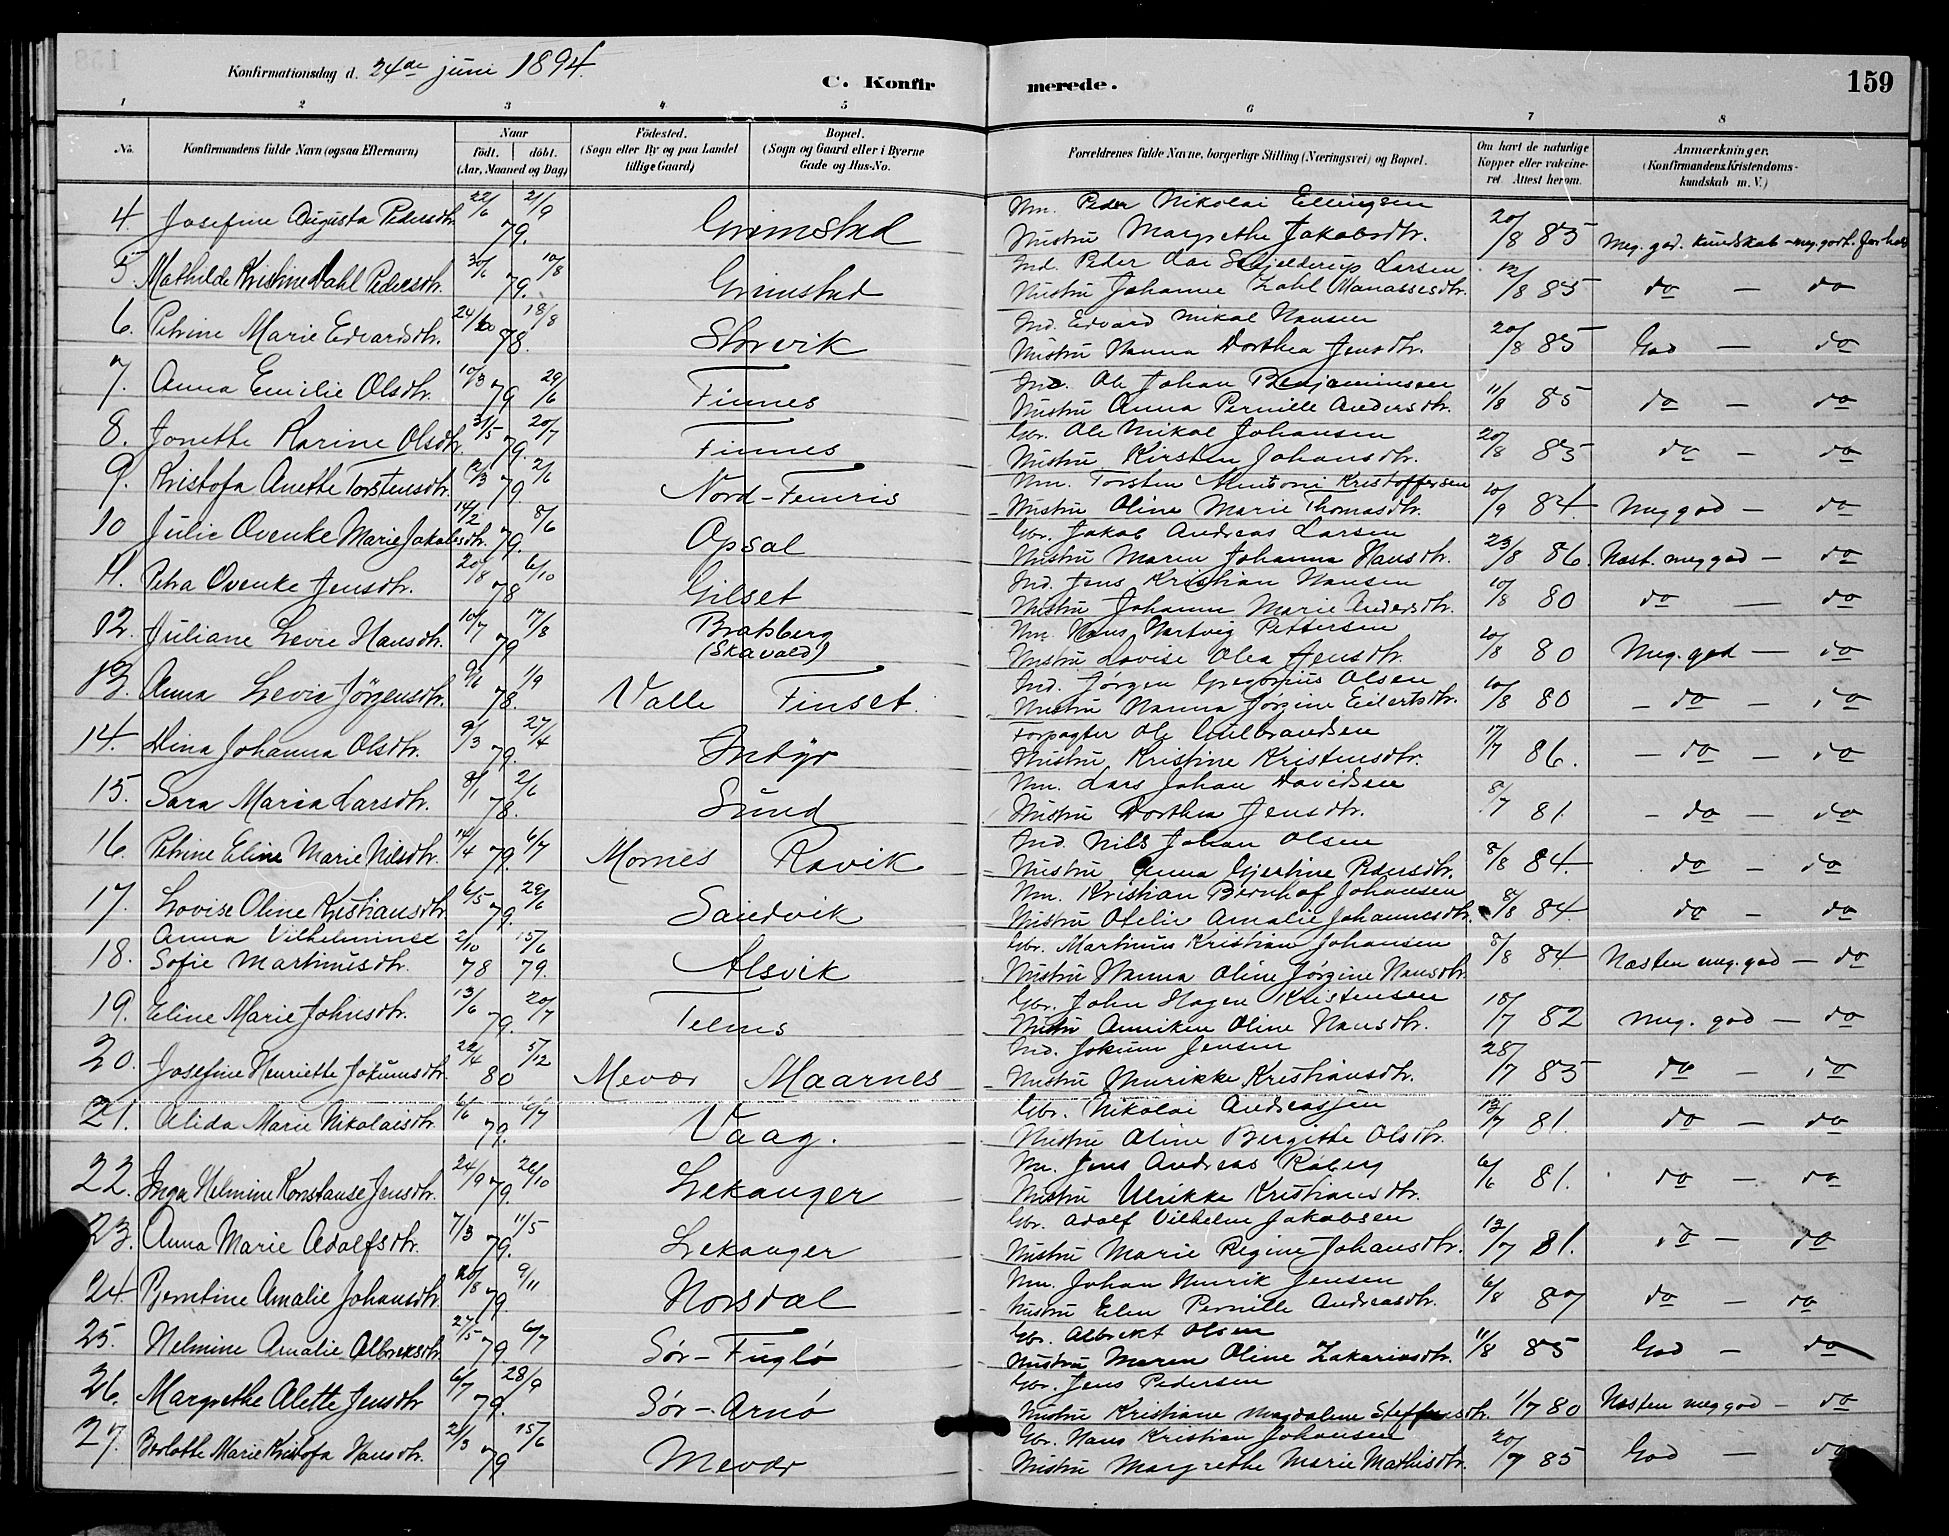 Konfirmationsdag d. 24de juni 1894.
C. Konfirmerede.
159
1 2 3 4 5 6 7 8
No. Konfirmandens fulde Navn (ogsaa Efternavn) Naar født. døbt. (Aar, Maaned og Dag) Fødested. (Sogn eller By og paa Landet tillige Gaard) Bopæl. (Sogn og Gaard eller i Byerne Gade og Hus-No. Forældrenes fulde Navne, borgerlige Stilling (Næringsvei) og Bopæl. Om havt de naturlige Kopper eller vaccineret. Attest herom. Anmærkninger. (Konfirmandens Kristendomskundskab m. V.)
4. Josefine Augusta Pedersdtr. 22/6 79. 21/9 Grimstad Nm. Peder Nikolai Ellingsen
Hustru Margrethe Jakobsdtr. 20/8 85 Meg. god. kundskab - meg. godt. forhold
5 Mathilde Kristine Dahl Pedersdtr. 30/6 79. 10/8 Grimstad Ind. Peder Schjelderup Larsen
Hustru Johanna Zahl Manassesdtr. 12/8 85 do - do
6. Petrine Marie Edvardsdtr. 78. 18/8 Storvik Ind. Edvard Mikal Hansen
Hustru Hanna Dorthea Jensdtr. 20/8 85 God - do
7. Anna Emilie Olsdtr. 10/3 79 29/6 Finnes Ind. Ole Johan Benjaminsen
Hustru Anna Pernille Andersdtr. 11/8 85 do - do
8. Jonette Karine Olsdtr. 31/5 79. 20/7 Finnes Gbr. Ole Mikal Johansen
Hustru Kirsten Johansdtr. 20/8 85 do - do
9. Kristofa Anette Torstensdtr. 12/3 79. 2/6 Nord-Femris Nm. Torsten Kristoffersen
Hustru Oline Marie Thomasdtr. 10/9 84. Meg god - do
10 Julie Ovenke Marie Jakobsdtr. 14/2 79. 8/6 Opsal Gbr. Jakob Andreas Larsen
Hustru Maren Johanna Hansdtr. 23/8 86. Næst. meg god - do
11. Petra Ovenke Jensdtr. 20/8 78 6/10 Gilset Ind. Jens Kristian Hansen
Hustru Johanna Marie Andersdtr. 10/8 80 do - do
12. Juliane Levie Hansdtr. 10/7 79 17/8 Braksberg
(Skavold) Nm. Hans Hartvig Pettersen
Hustru Lovise Olea Jensdtr. 10/8 80 Meg. god - do
13. Anna Levie Jørgensdtr. 9/6 78. 1/9 Valle Finset. Ind. Jørgen Gregorius Olsen
Hustru Hanna Jørgine Eilertsdtr. 10/8 80 - do - do
14. Dina Johanna Olsdtr. 9/3 79. 27/4 Indyr Forpagter Ole Gulbrandsen
Hustru Kristine Kristensdtr. 17/7 86. - do - do
15. Sara Maria Larsdtr. 8/1 78. 2/6 Sund Nm. Lars Johan Davidsen
Hustru Dorthea Jensdtr. 8/7 81. - do - do
16. Petrine Eline Marie Nilsdtr. 14/4 79. 6/7 Mornes Ravik Ind. Nils Johan Olsen
Hustru Anna Gjertine Pedersdtr. 8/8 84. do - do
17. Lovise Oline Kristiansdtr. 6/5 79. 29/6 Sandvik Nm. Kristian Bernhof Johansen
Hustru Otelie Amalie Johannesdtr. 8/8 84 do - do
18. Anna Vilhelmine
Sofie Martinusdtr. 2/10 78 15/6 79. Alsvik Gbr. Martinus Kristian Johansen
Hustru Hanna Oline Jørgine Hansdtr. 8/8 84. Næsten meg. god - do
19. Eline Marie Johnsdtr. 13/6 79. 20/7 Telnes Gbr. John Hagen Kristensen
Hustru Anniken Oline Hansdtr. 18/7 82 Meg. god - do
20. Josefine Henriette Jokumsdtr. 22/4 80 5/12 Mevær Maarnes Ind. Jokum Jensen
Hustru Henrikke Kristiansdtr. 28/7 85 do - do
21. Alida Marie Nikolaisdtr. 6/6 79. 6/7 Vaag. Gbr. Nikolai Andreassen
Hustru Oline Bergitte Olsdtr. 13/7 81. do - do
22. Inga Helmine Konstanse Jensdtr. 24/9 79. 26/10 Lekanger Nm. Jens Andreas Røberg
Hustru Ulrikke Kristiansdtr. 6/6 81. do - do
23. Anna Marie Adolfsdtr. 7/3 79. 11/5 Lekanger Gbr. Adolf Vilhelm Jakobsen
Hustru Marie Regine Johansdtr. 13/7 81. do - do
24. Berntine Amalie Johansdtr. 20/8 79. 9/11 Horsdal Nm. Johan Henrik Jensen
Hustru Elen Pernille Andreasdtr. 6/8 87 do - do
25. Helmine Amalie Albreksdtr. 27/5 79 6/7 Sør-Fuglø Gbr. Albrekt Olsen
Hustru Maren Oline Zakariasdtr. 11/8 85 God - do
26. Margrethe Alette Jensdtr. 6/7 79. 28/9 Sør-Arnø Gbr. Jens Pedersen
Hustru Kristiane Magdalene Steffensdtr. 1/7 80 Næsten meg god - do
27. Berlotte Marie Kristofa Hansdtr. 21/3 79 15/6 Mevær Gbr. Hans Kristian Johansen
Hustru Margrethe Marie Mathisdtr. 20/7 85 God - do